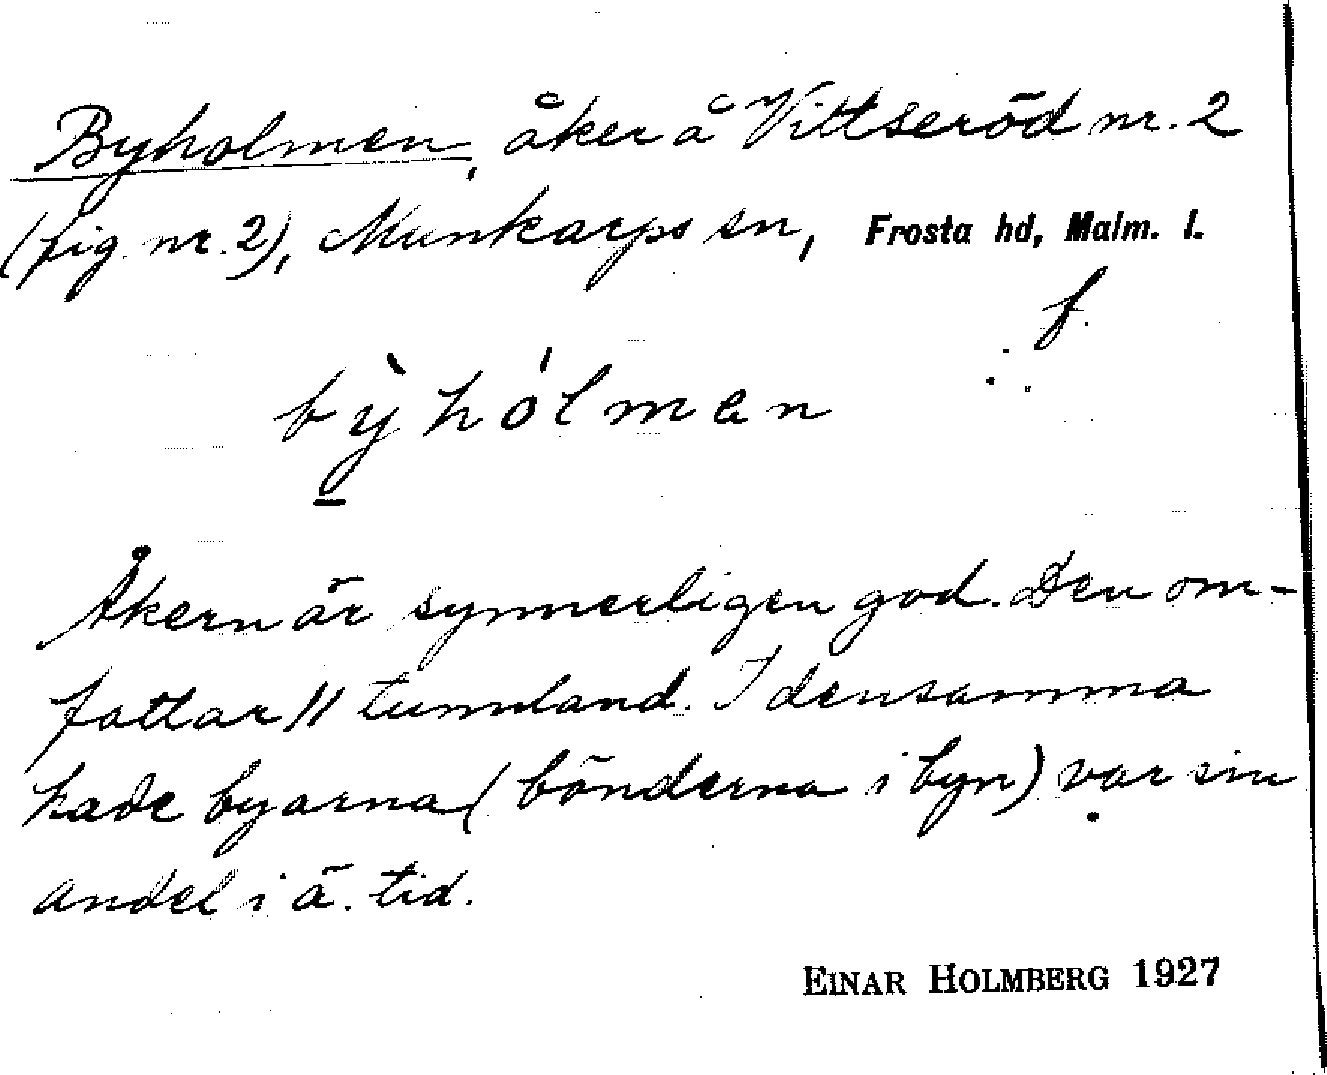 Byholmen, åker å Vittseröd nr. 2
(fig. nr. 2), Munkarps sn, Frosta hd, Malm. l.
f.
bỳhólmen
Åkern är synnerligen god. Den om-
fattar 11 tunnland. I densamma
hade byarna (bönderna i byn) var sin
andel i ä. tid.
EINAR HOLMBERG 1927